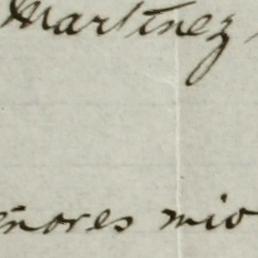 Martinez,
eñores mio